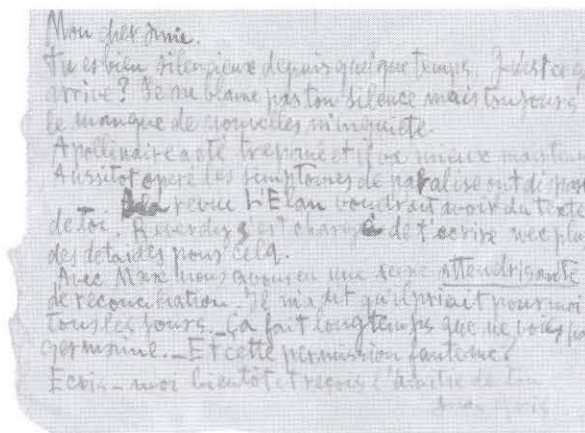 Mon cher Amie.
Tu es bien silencieux depuis quelque temps. Qu'est ce q
arrive? Je ne blame pas ton silence mais toujours
le manque de nouvelles m'inquiete.
Apollinaire a eté trepané et il va mieux mainten
Aussitot operé les simptomes de paralise ont dispar
La revue L'Elan voudrait avoir du texte
de toi. Reverdy s'est chargé de t'ecrire avec plu
des detaides pour cela.
Avec Max nous avons eu une scene attendrisante
de reconciliation. Il m'a dit qu'il priait pour moi
tous les jours. _ Ça fait longtemps que ne vois pa
Germaine. _ Et cette permission fantome?
Ecris-moi bientôt et reçois l'amitié de ton
Juan Gris